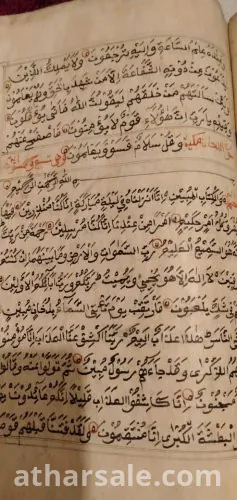 وعنده علم الساعة واليه ترجعون ولا يملك الذين
يدعون من دونه الشفاعة الا من شهد بالحق وهم يعلمون
ولئن سالتهم من خلقهم ليقولن الله فانى يوفكون
وقيله يارب ان هؤلاء قوم لا يومنون فاصفح عنهم
وقل سلام فسوف تعلمون
بسم الله الرحمن الرحيم
والكتاب المبين انا انزلناه في ليلة مباركة انا كنا منذرين
كل امر حكيم امرا من عندنا انا كنا مرسلين رحمة من
هو السميع العليم رب السماوات والارض وما بينهما ان كنتم
لا اله الا هو يحيي ويميت ربكم ورب ابائكم الاولين
في شك يلعبون فارتقب يوم تاتي السماء بدخان مبين
الناس هذا عذاب اليم ربنا اكشف عنا العذاب انا مومنون
لهم الذكرى وقد جاءهم رسول مبين ثم تولوا عنه وقالوا
مجنون انا كاشفوا العذاب قليلا انكم عائدون يوم
البطشة الكبرى انا منتقمون ولقد فتنا قبلهم قوم
atharsale.com